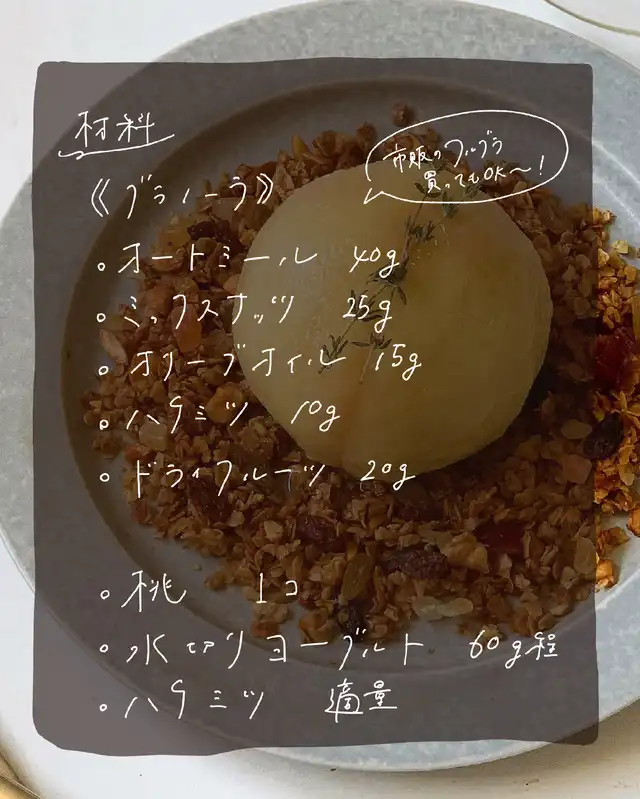 材料
市販のフルグラ
買ってもOK〜！
《グラノーラ》
。オートミール 40g
。ミックスナッツ 25g
。オリーブオイル 15g
。ハチミツ 10g
。ドライフルーツ 20g
。桃 1コ
。水切りヨーグルト 60g程
。ハチミツ 適量